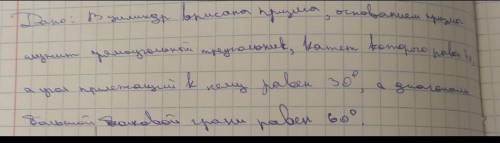 Дано: В цилиндр вписана призма, основанием призма
служит прямоугольный треугольник, катет которого равен
а угол прилежащий к нему равен 30°, а диагональ
большой боковой грани равен 60°.